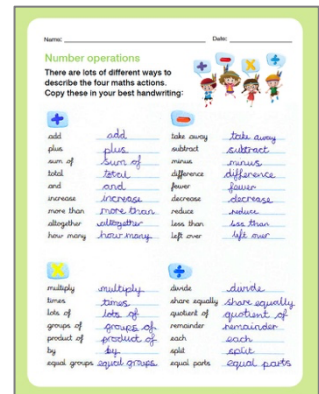 Name: Date:
Number operations
There are lots of different ways to
describe the four maths actions.
Copy these in your best handwriting:
+ − × ÷
+
add add
plus plus
sum of sum of
total total
and and
increase increase
more than more than
altogether altogether
how many how many
−
take away take away
subtract subtract
minus minus
difference difference
fewer fewer
decrease decrease
reduce reduce
less than less than
left over left over
×
multiply multiply
times times
lots of lots of
groups of groups of
product of product of
by by
equal groups equal groups
÷
divide divide
share equally share equally
quotient of quotient of
remainder remainder
each each
split split
equal parts equal parts